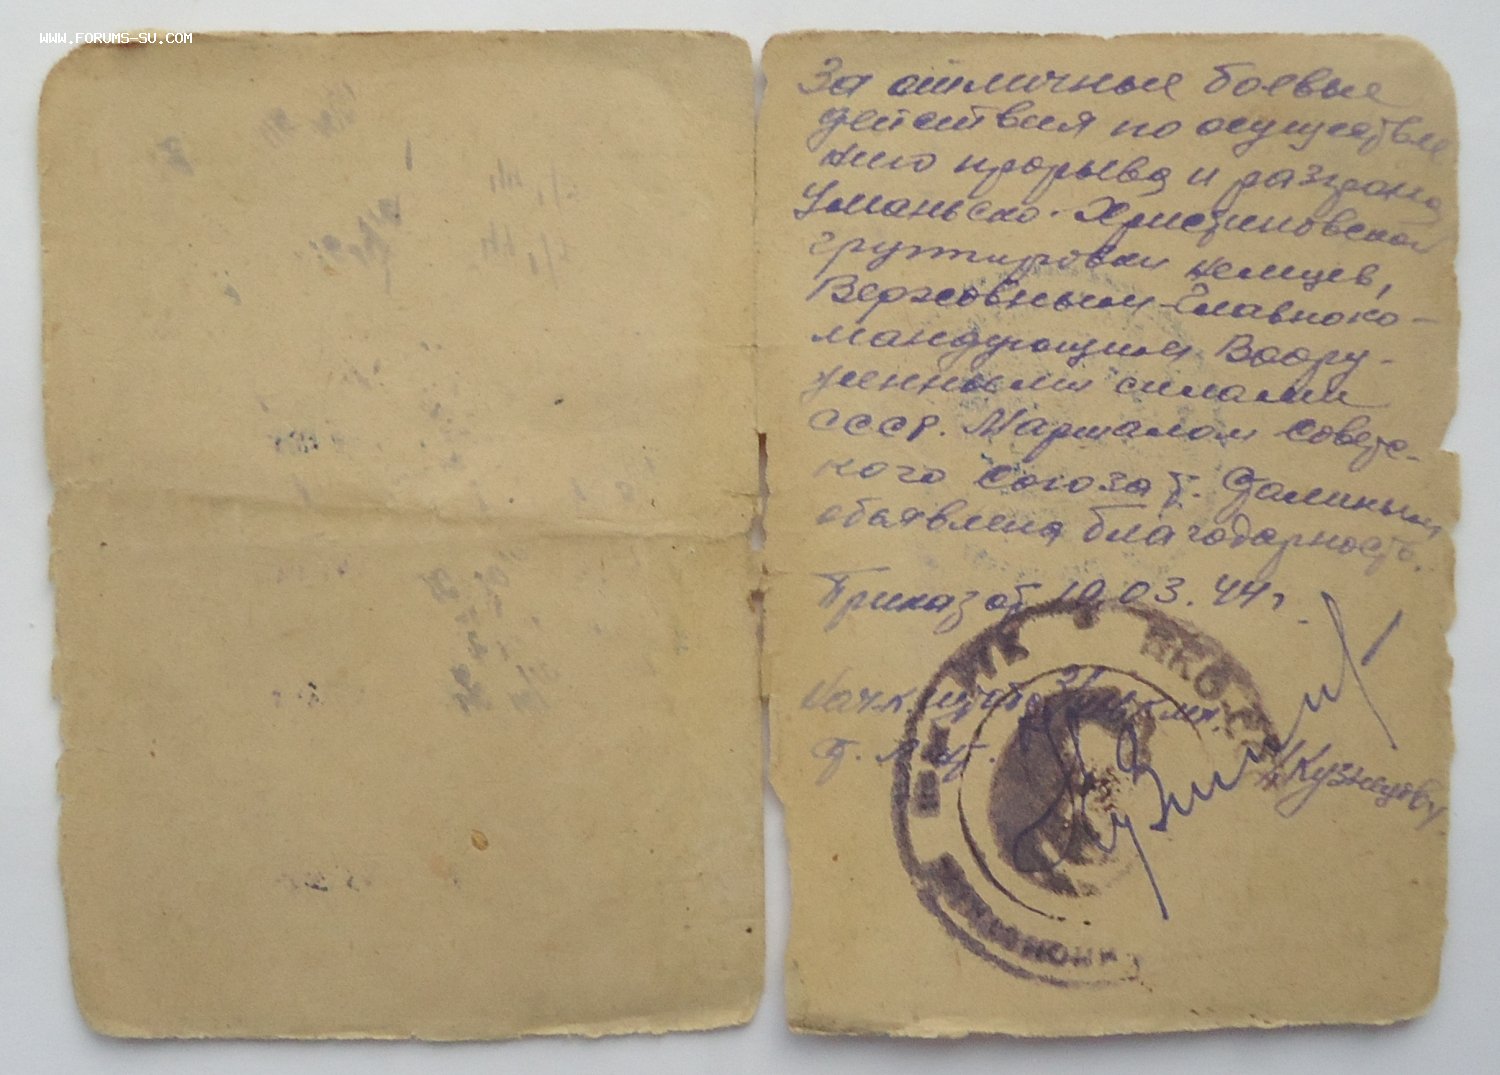 WWW.FORUMS-SU.COM
За отличные боевые
действия по осуществле
нию прорыва и разгрома
Уманьско-Христиновской
группировки немцев,
Верховным Главноко-
мандующим Воору-
женными силами
СССР. Маршалом Советс-
кого Союза т. Сталиным
объявлена благодарность.
Приказ от 10.03.44 г.
Нач. штаба
/Кузнецов/